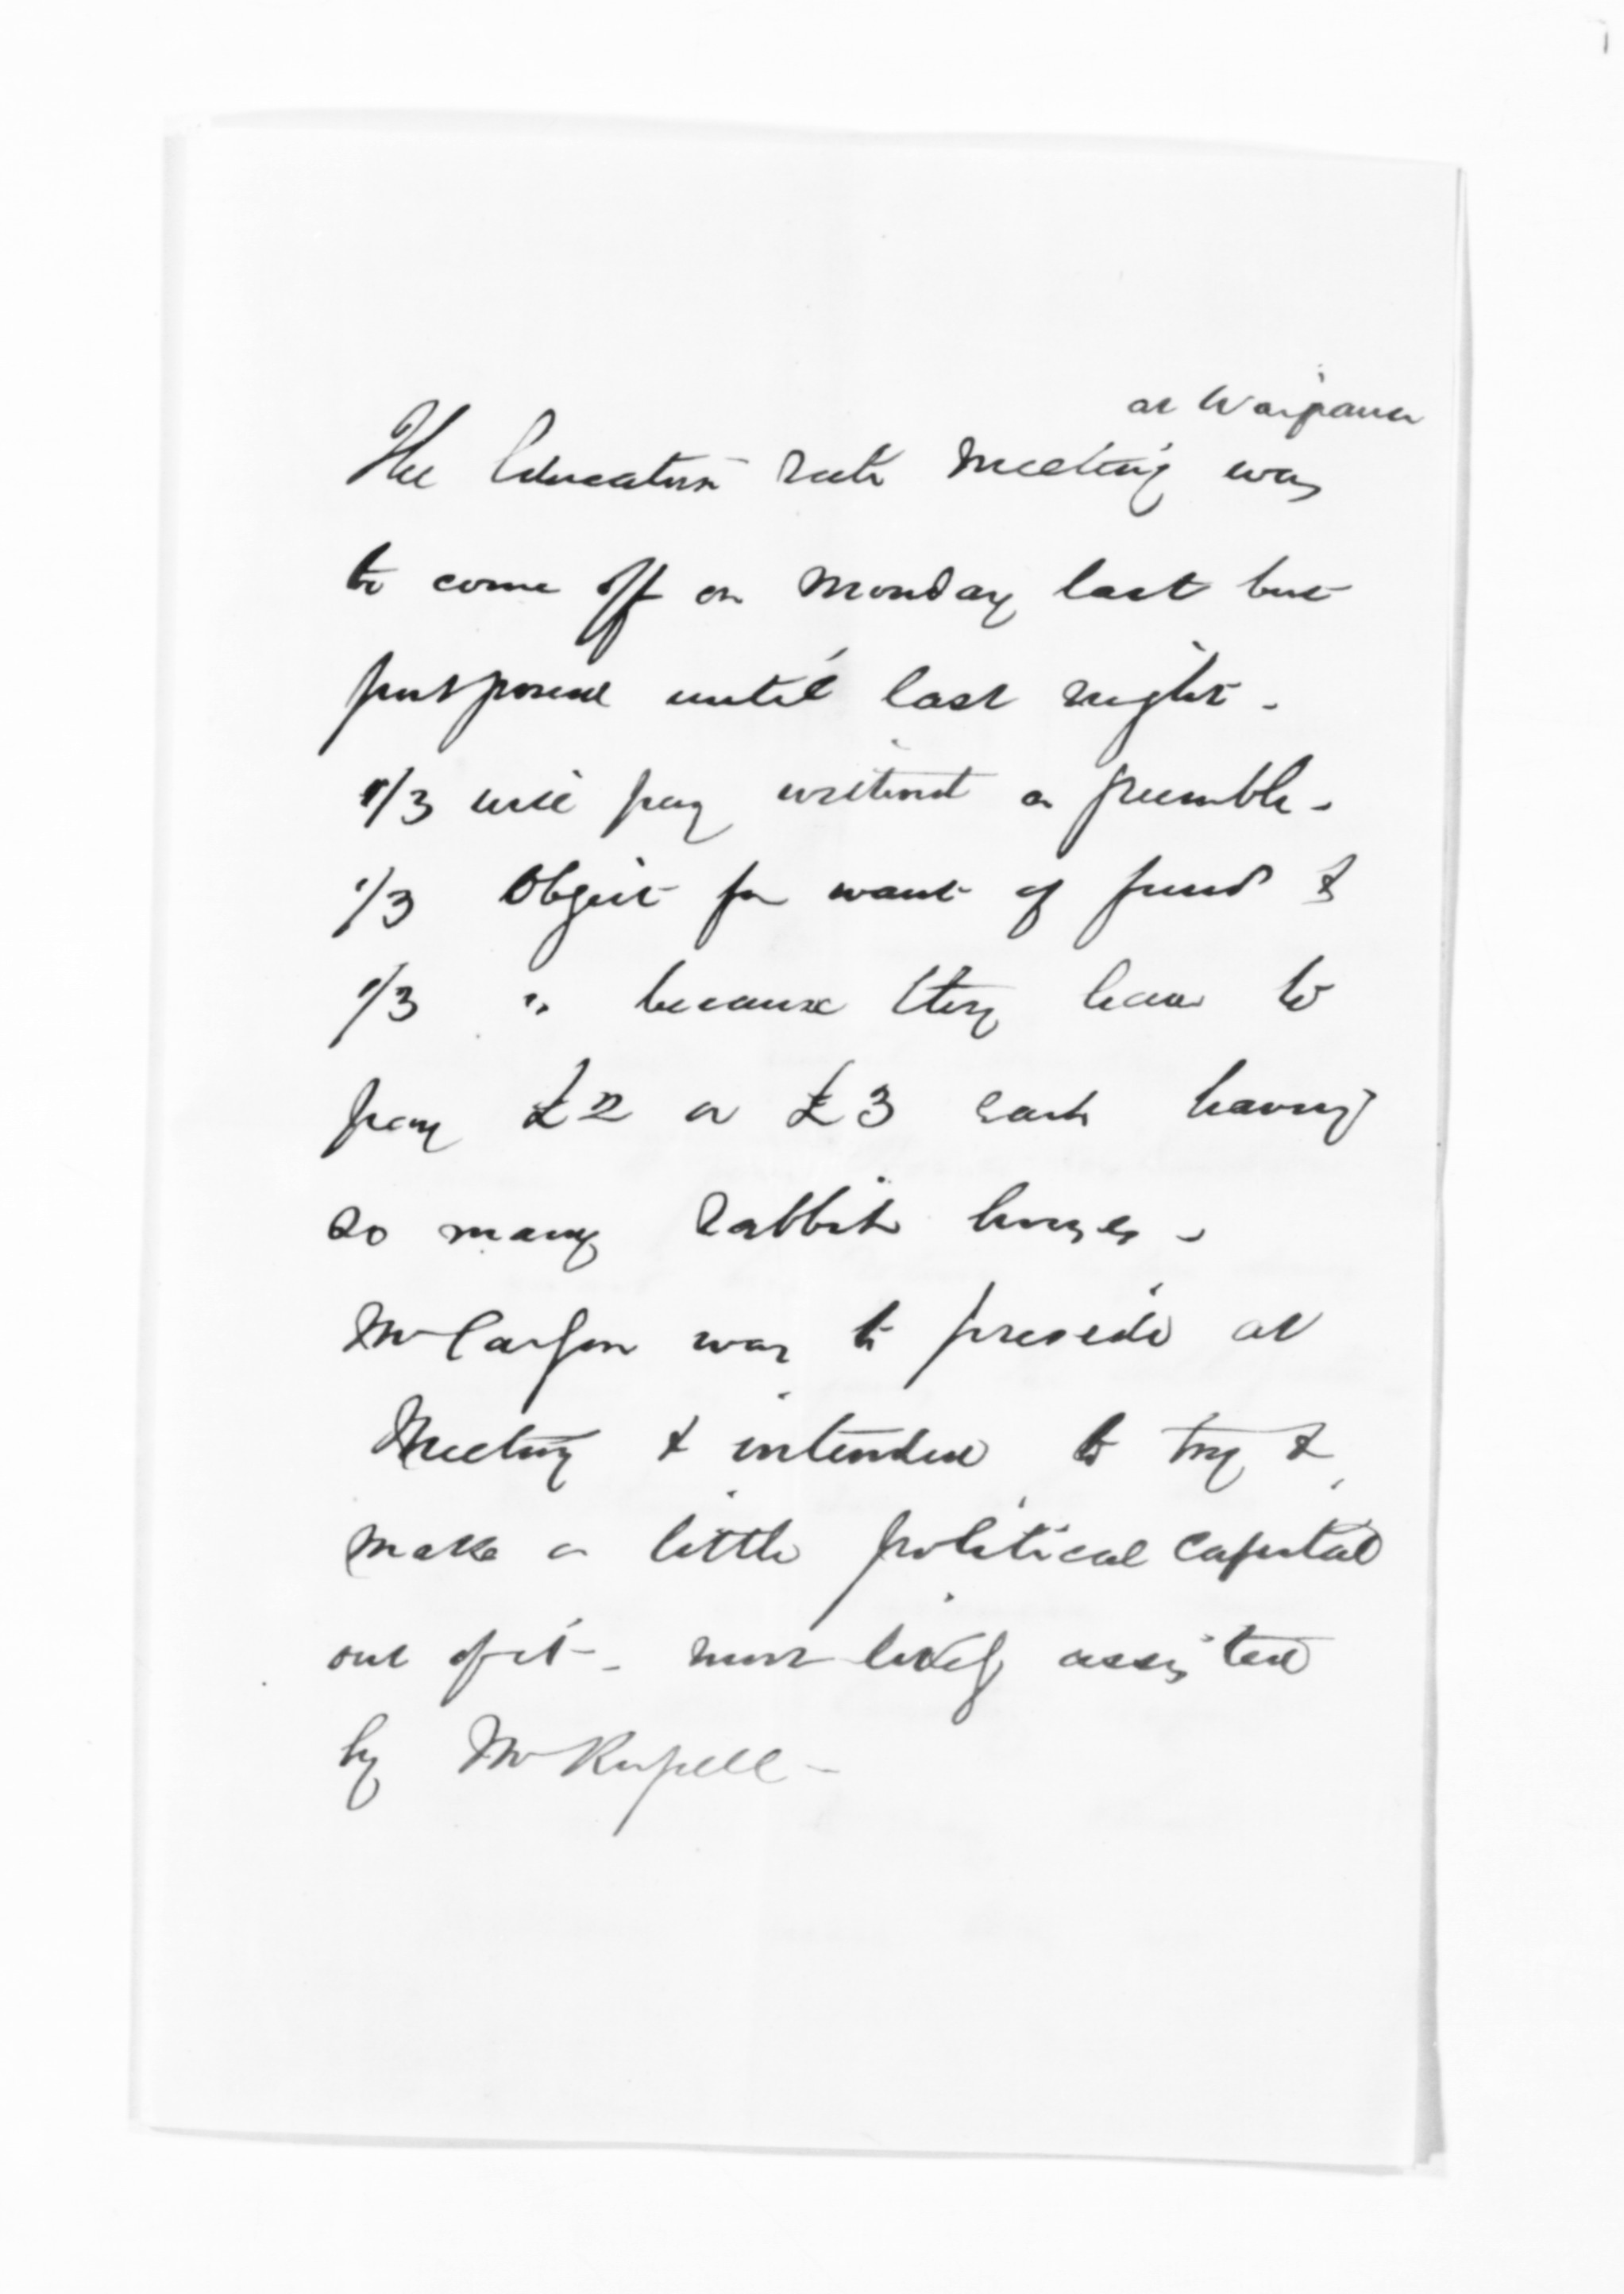 at Waipawa
The Education rate meeting was
to come off on Monday last but
postponed until last night -
1/3 will pay without a grumble -
1/3 Object for want of funds &
1/3 " because they have to
pay £2 or £3 each having
so many rabbit houses -
Mr Carlyon was to preside at
Meeting & intended to try &
make a little political capital
out of it - most likely assisted
by Mr Russell -